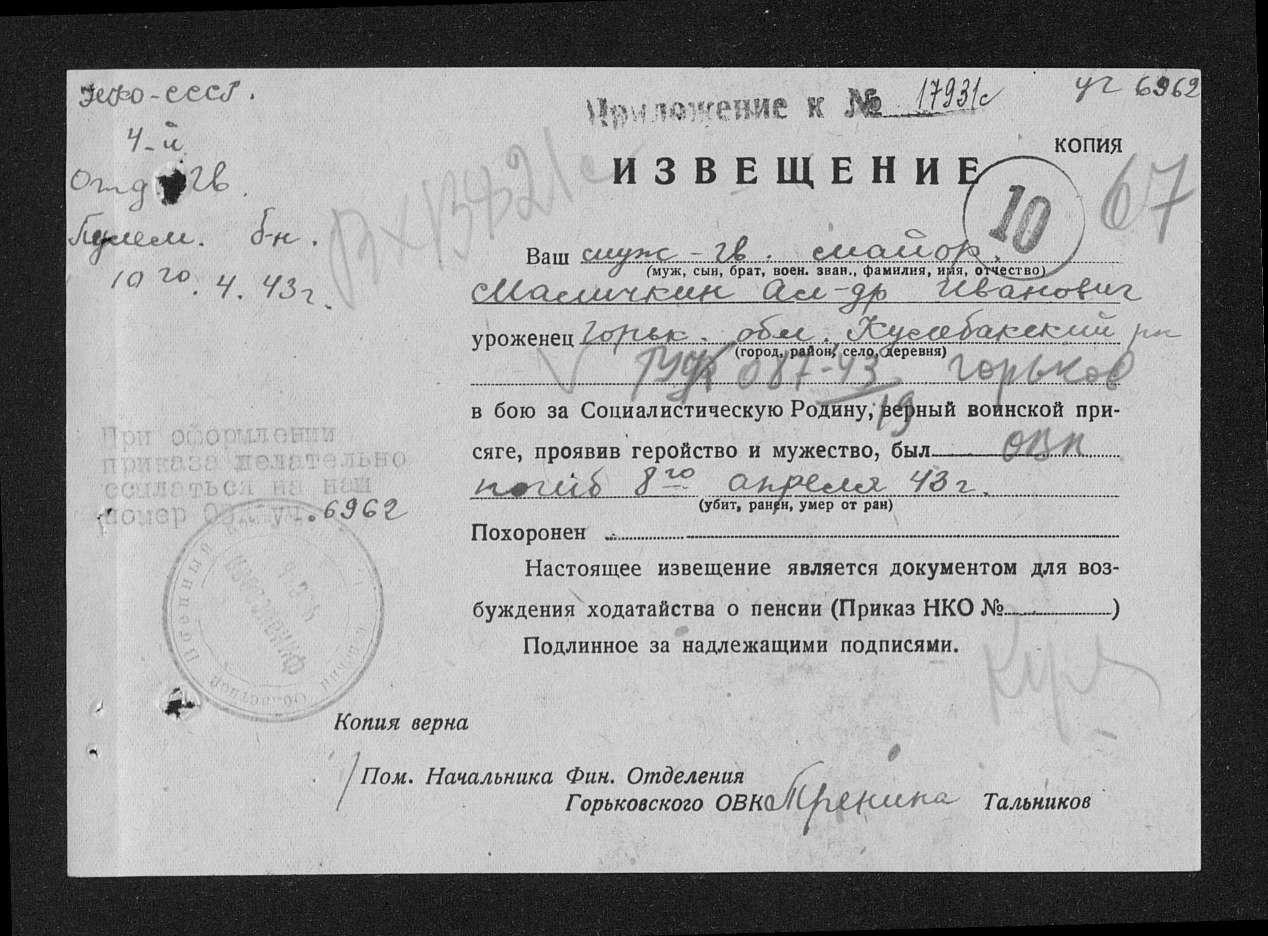 НКО-СССР.
4-й
Отд гв.
Пулем. б-н.
10 го. 4. 43 г.
Приложение к № 17931с
уг 6962
КОПИЯ
ИЗВЕЩЕНИЕ
10
67
Ваш муж - гв. майор.
(муж, сын, брат, воен. зван., фамилия, имя, отчество)
Маличкин Ал-др Иванович
уроженец Горьк. обл., Кулебакский рн
(город, район, село, деревня)
087-43 Горьков
19
в бою за Социалистическую Родину, верный воинской при-
сяге, проявив геройство и мужество, был
ОВК
погиб 8го апреля 43 г.
(убит, ранен, умер от ран)
Похоронен
Настоящее извещение является документом для воз-
буждения ходатайства о пенсии (Приказ НКО № )
Подлинное за надлежащими подписями.
При оформлении
приказа желательно
ссылаться на наш
номер уч. 6962
Копия верна
Пом. Начальника Фин. Отделения
Горьковского ОВК Тренина Тальников